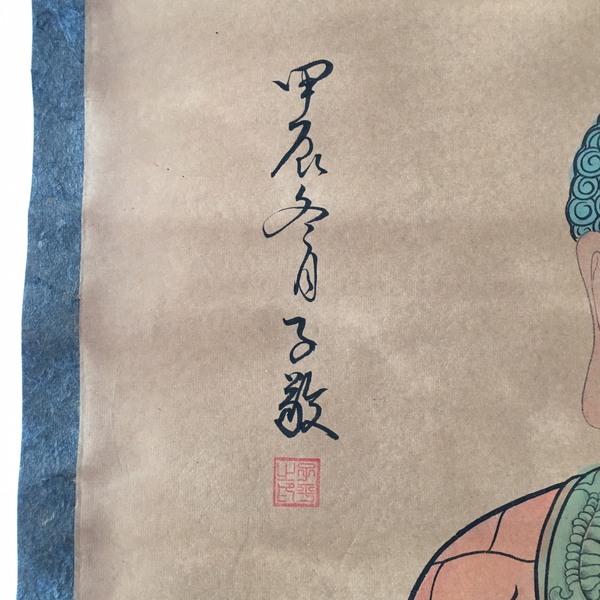 甲辰冬月子敬